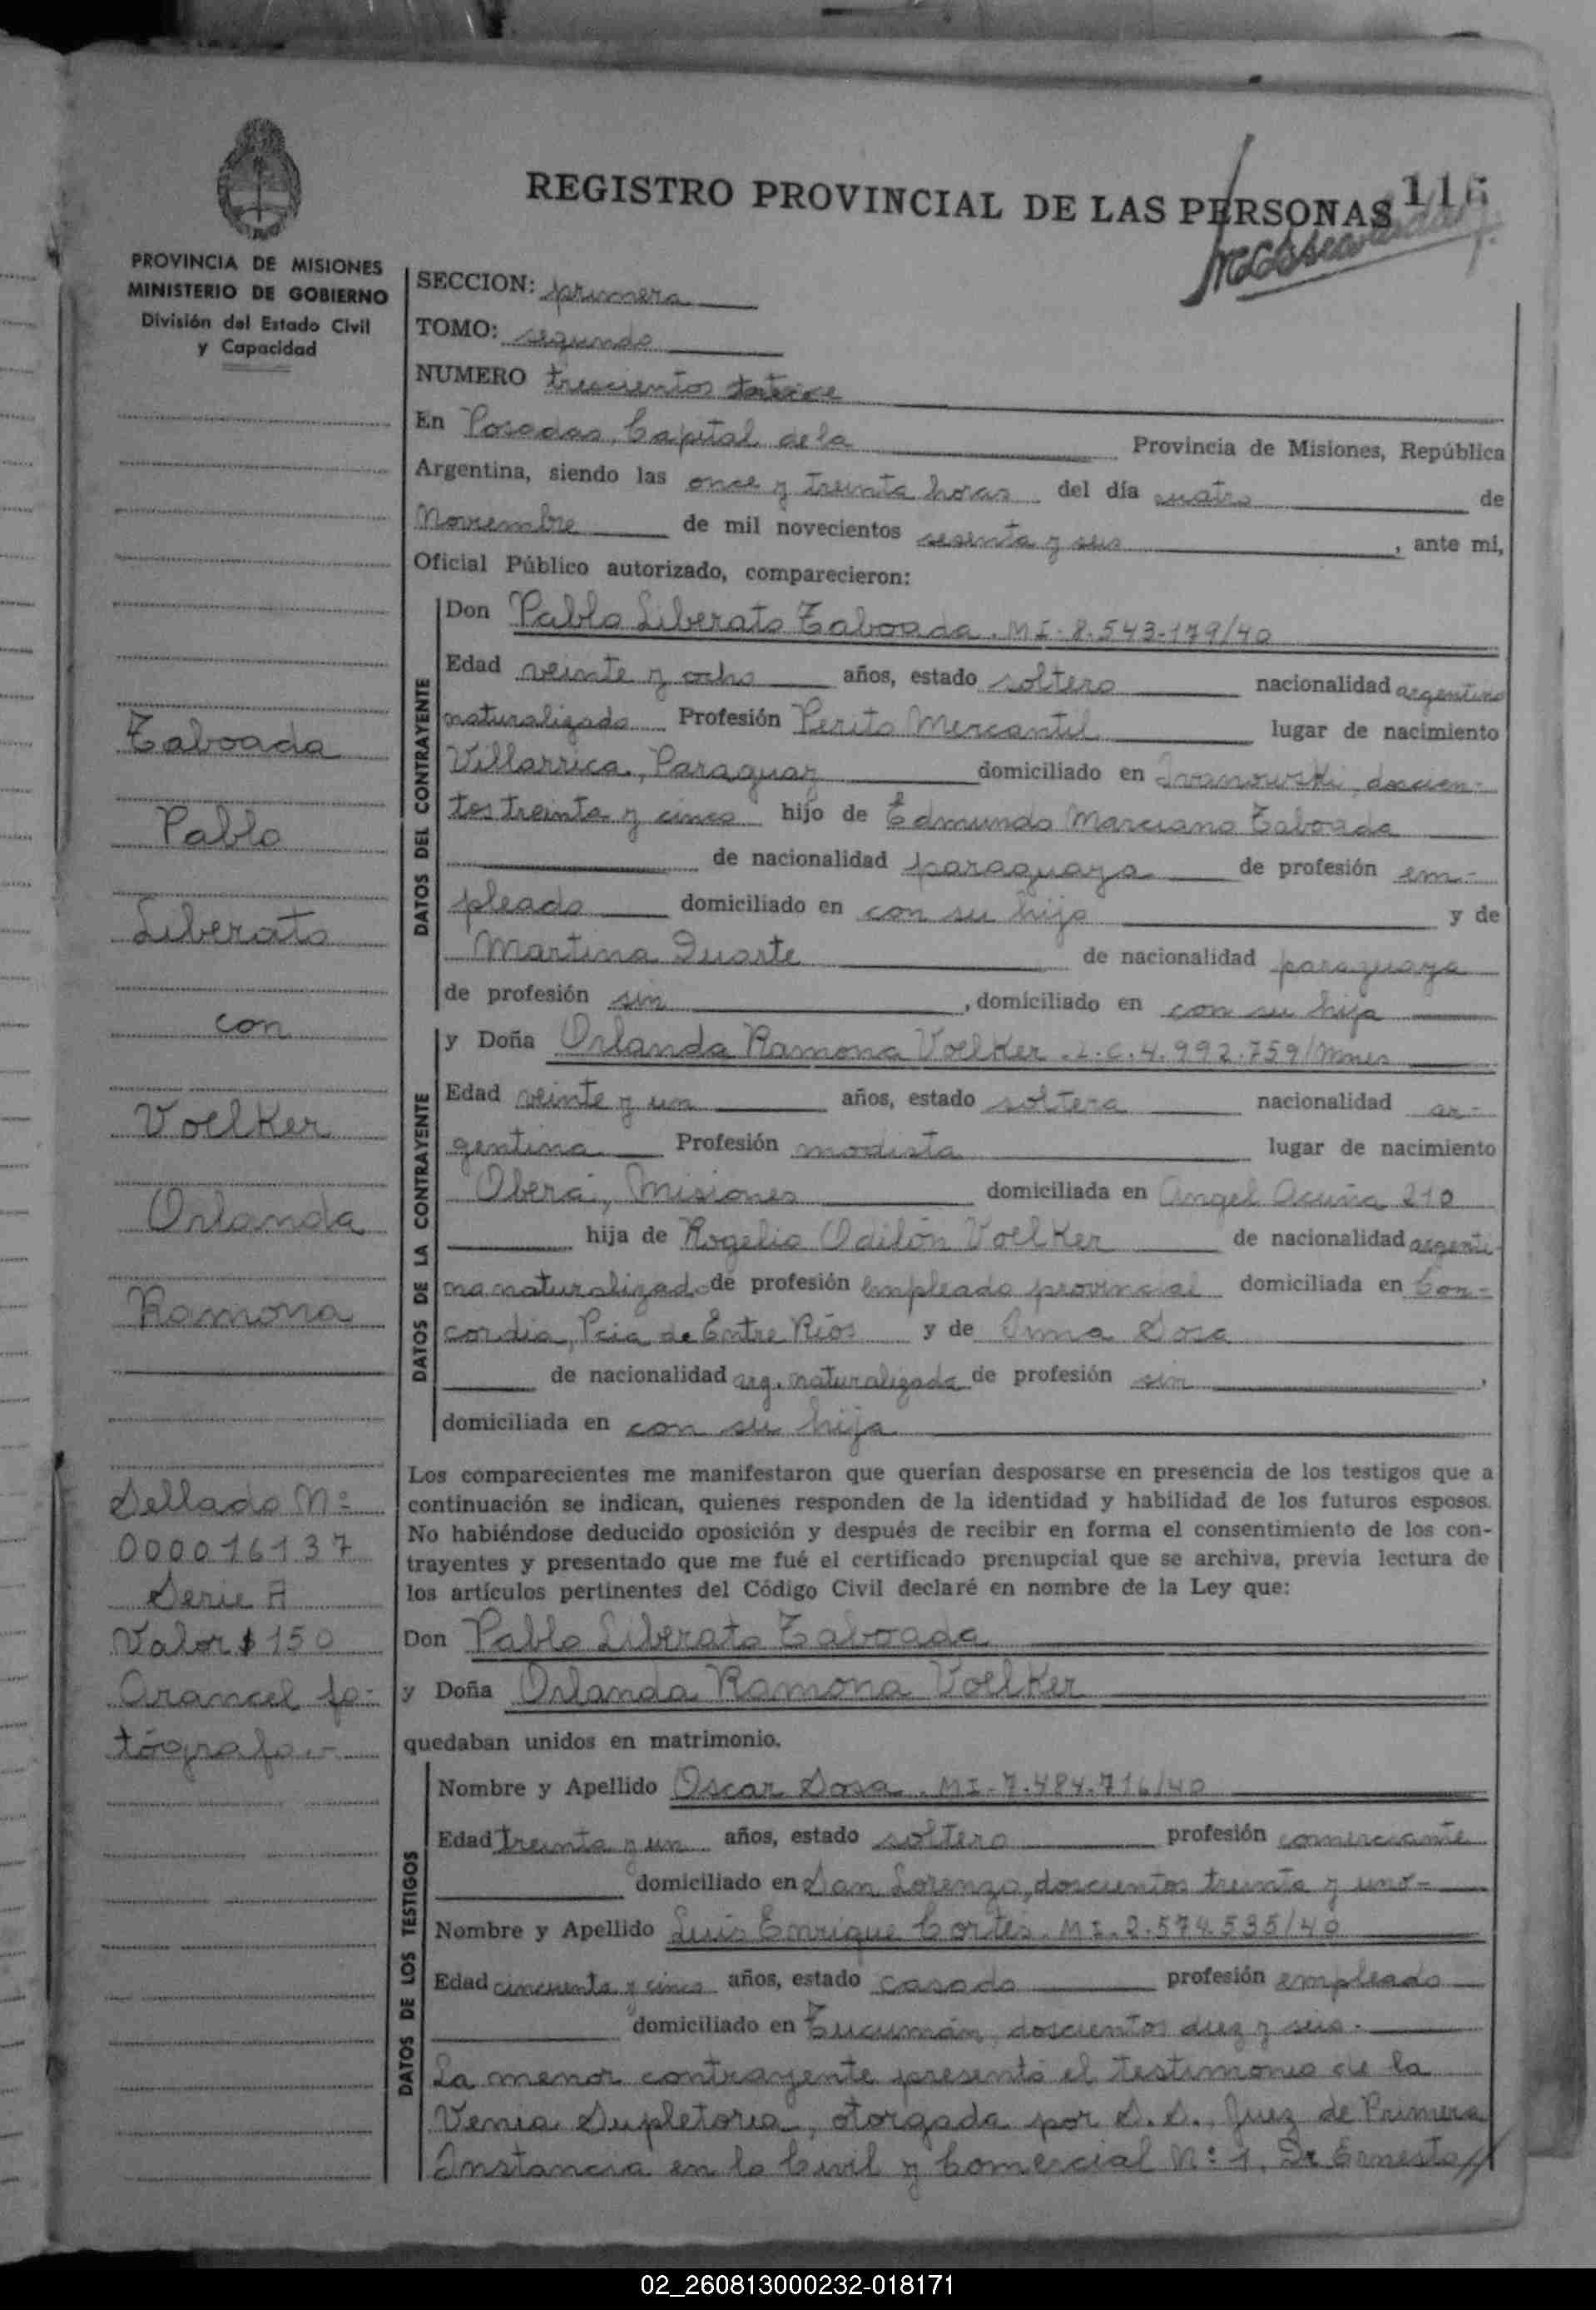 REGISTRO PROVINCIAL DE LAS PERSONAS
116
PROVINCIA DE MISIONES
MINISTERIO DE GOBIERNO
División del Estado Civil
y Capacidad
Taboada
Pablo
Liberato
con
Voelker
Orlanda
Ramona
Sellado Nº
000016137
Serie A
Valor $ 150
Arancel fo-
tógrafo.-
SECCION: primera
TOMO: segundo
NUMERO trescientos trece
En Posadas, Capital de la Provincia de Misiones, República
Argentina, siendo las once y treinta horas del día cuatro de
Noviembre de mil novecientos sesenta y seis, ante mi,
Oficial Público autorizado, comparecieron:
DATOS DEL CONTRAYENTE
Don Pablo Liberato Taboada. MI-8.543.179/40
Edad veinte y ocho años, estado soltero nacionalidad argentino
naturalizado Profesión Perito Mercantil lugar de nacimiento
Villarrica, Paraguay domiciliado en Ivanowski, doscien-
tos treinta y cinco hijo de Edmundo Marciano Taboada
de nacionalidad paraguaya de profesión em-
pleado domiciliado en con su hijo y de
Martina Duarte de nacionalidad paraguaya
de profesión sin, domiciliado en con su hijo
DATOS DE LA CONTRAYENTE
y Doña Orlanda Ramona Voelker. L.C.4.992.759/Mnes
Edad veinte y un años, estado soltera nacionalidad ar-
gentina Profesión modista lugar de nacimiento
Oberá, Misiones domiciliada en Angel Acuña 210
hija de Rogelio Odilón Voelker de nacionalidad argenti-
na naturalizado de profesión empleado provincial domiciliada en Con-
cordia, Pcia de Entre Ríos y de Irma Sosa
de nacionalidad arg. naturalizada de profesión sin,
domiciliada en con su hija
Los comparecientes me manifestaron que querían desposarse en presencia de los testigos que a
continuación se indican, quienes responden de la identidad y habilidad de los futuros esposos.
No habiéndose deducido oposición y después de recibir en forma el consentimiento de los con-
trayentes y presentado que me fué el certificado prenupcial que se archiva, previa lectura de
los artículos pertinentes del Código Civil declaré en nombre de la Ley que:
Don Pablo Liberato Taboada
y Doña Orlanda Ramona Voelker
quedaban unidos en matrimonio.
DATOS DE LOS TESTIGOS
Nombre y Apellido Oscar Sosa. MI-7.484.716/40
Edad treinta y un años, estado soltero profesión comerciante
domiciliado en San Lorenzo, doscientos treinta y uno-
Nombre y Apellido Luis Enrique Cortés. MI.2.574.535/40
Edad cincuenta y cinco años, estado casado profesión empleado
domiciliado en Tucumán, doscientos diez y seis.
La menor contrayente presentó el testimonio de la
Venia Supletoria, otorgada por S.S., Juez de Primera
Instancia en lo Civil y Comercial Nº 1, Dr Ernesto//
02_260813000232-018171